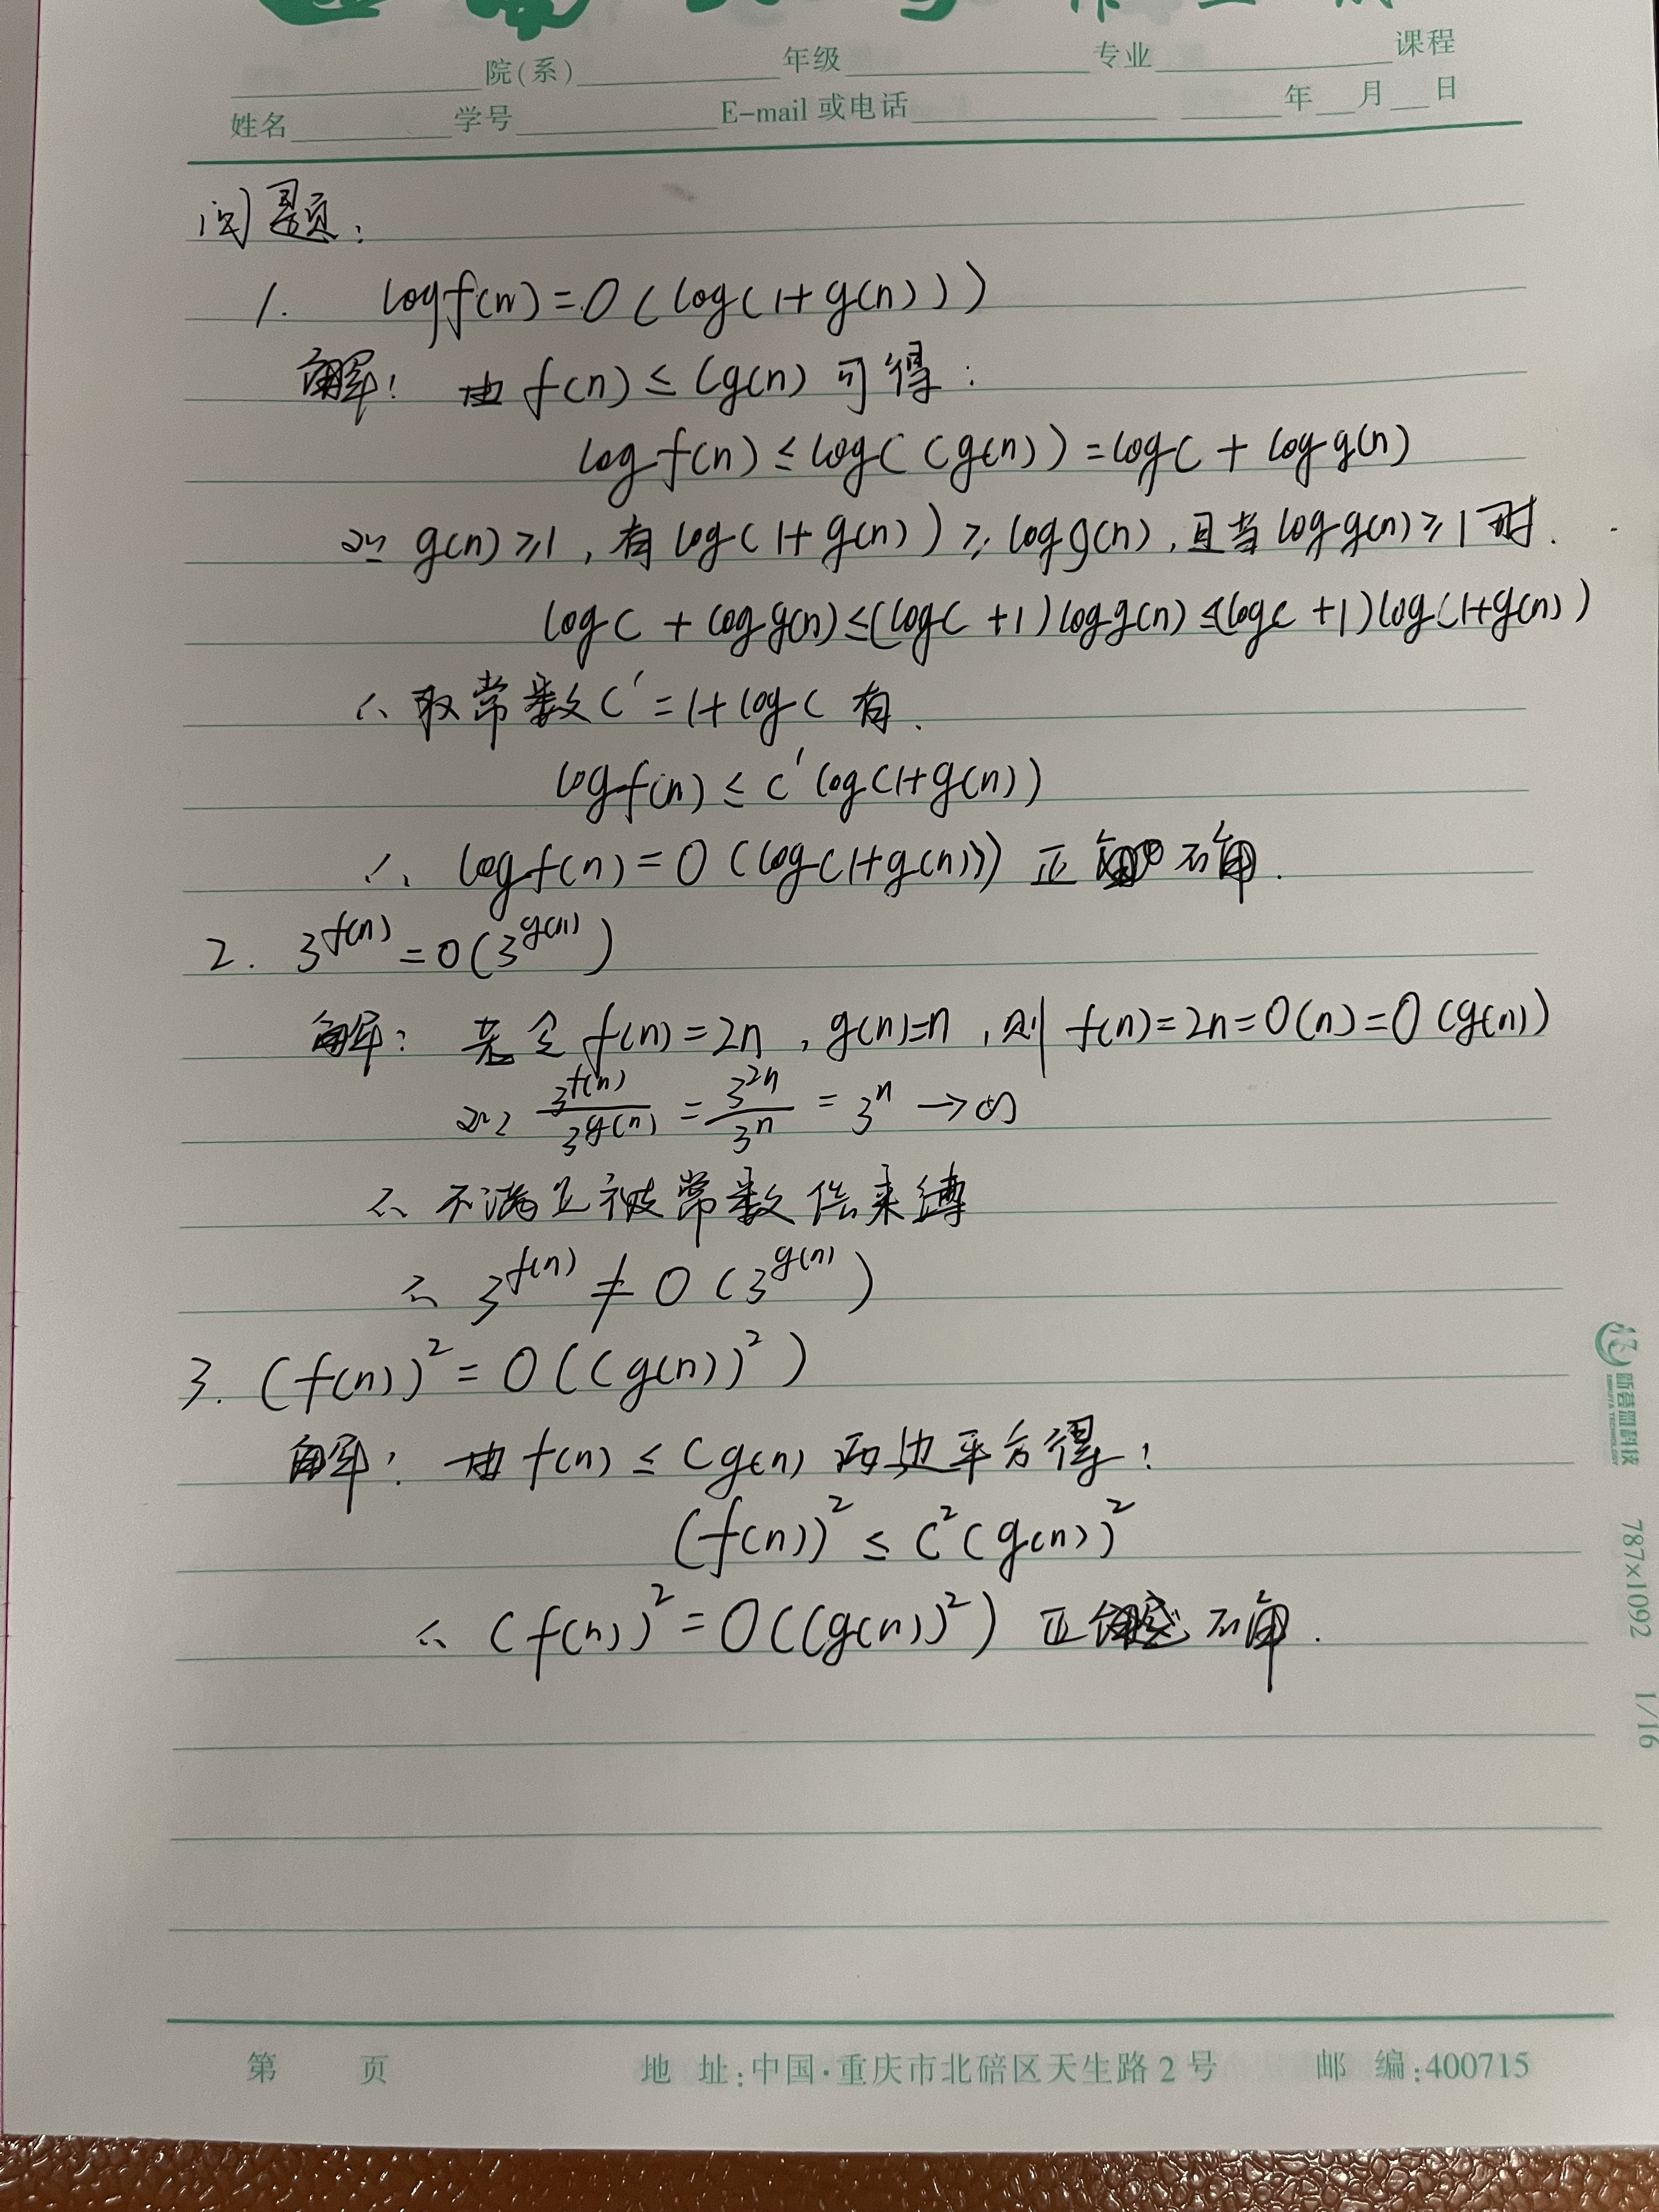 院(系) 年级 专业 课程
姓名 学号 E-mail 或电话 年 月 日
问题:
1. log f(n) = O ( log(1+g(n)))
解: 由 f(n) ≤ Cg(n) 可得:
log f(n) ≤ log( Cg(n)) = log C + log g(n)
∵ g(n) ≥ 1, 有 log(1+g(n)) ≥ log g(n), 且当 log g(n) ≥ 1 时.
log C + log g(n) ≤ (log C +1) log g(n) ≤ (log C +1) log(1+g(n))
∴ 取常数 C' = 1+ log C 有.
log f(n) ≤ C' log(1+g(n))
∴ log f(n) = O (log(1+g(n))) 正确.
2. 3^f(n) = O(3^g(n))
解: 若令 f(n) = 2n, g(n)=n, 则 f(n) = 2n = O(n) = O(g(n))
∵ 3^f(n)/3^g(n) = 3^2n/3^n = 3^n → ∞
∴ 不满足被常数倍束缚
∴ 3^f(n) ≠ O (3^g(n))
3. (f(n))² = O((g(n))²)
解: 由 f(n) ≤ Cg(n) 两边平方得:
(f(n))² ≤ C²(g(n))²
∴ (f(n))² = O((g(n))²) 正确.
787×1092 1/16
第 页 地 址:中国·重庆市北碚区天生路 2 号 邮 编:400715